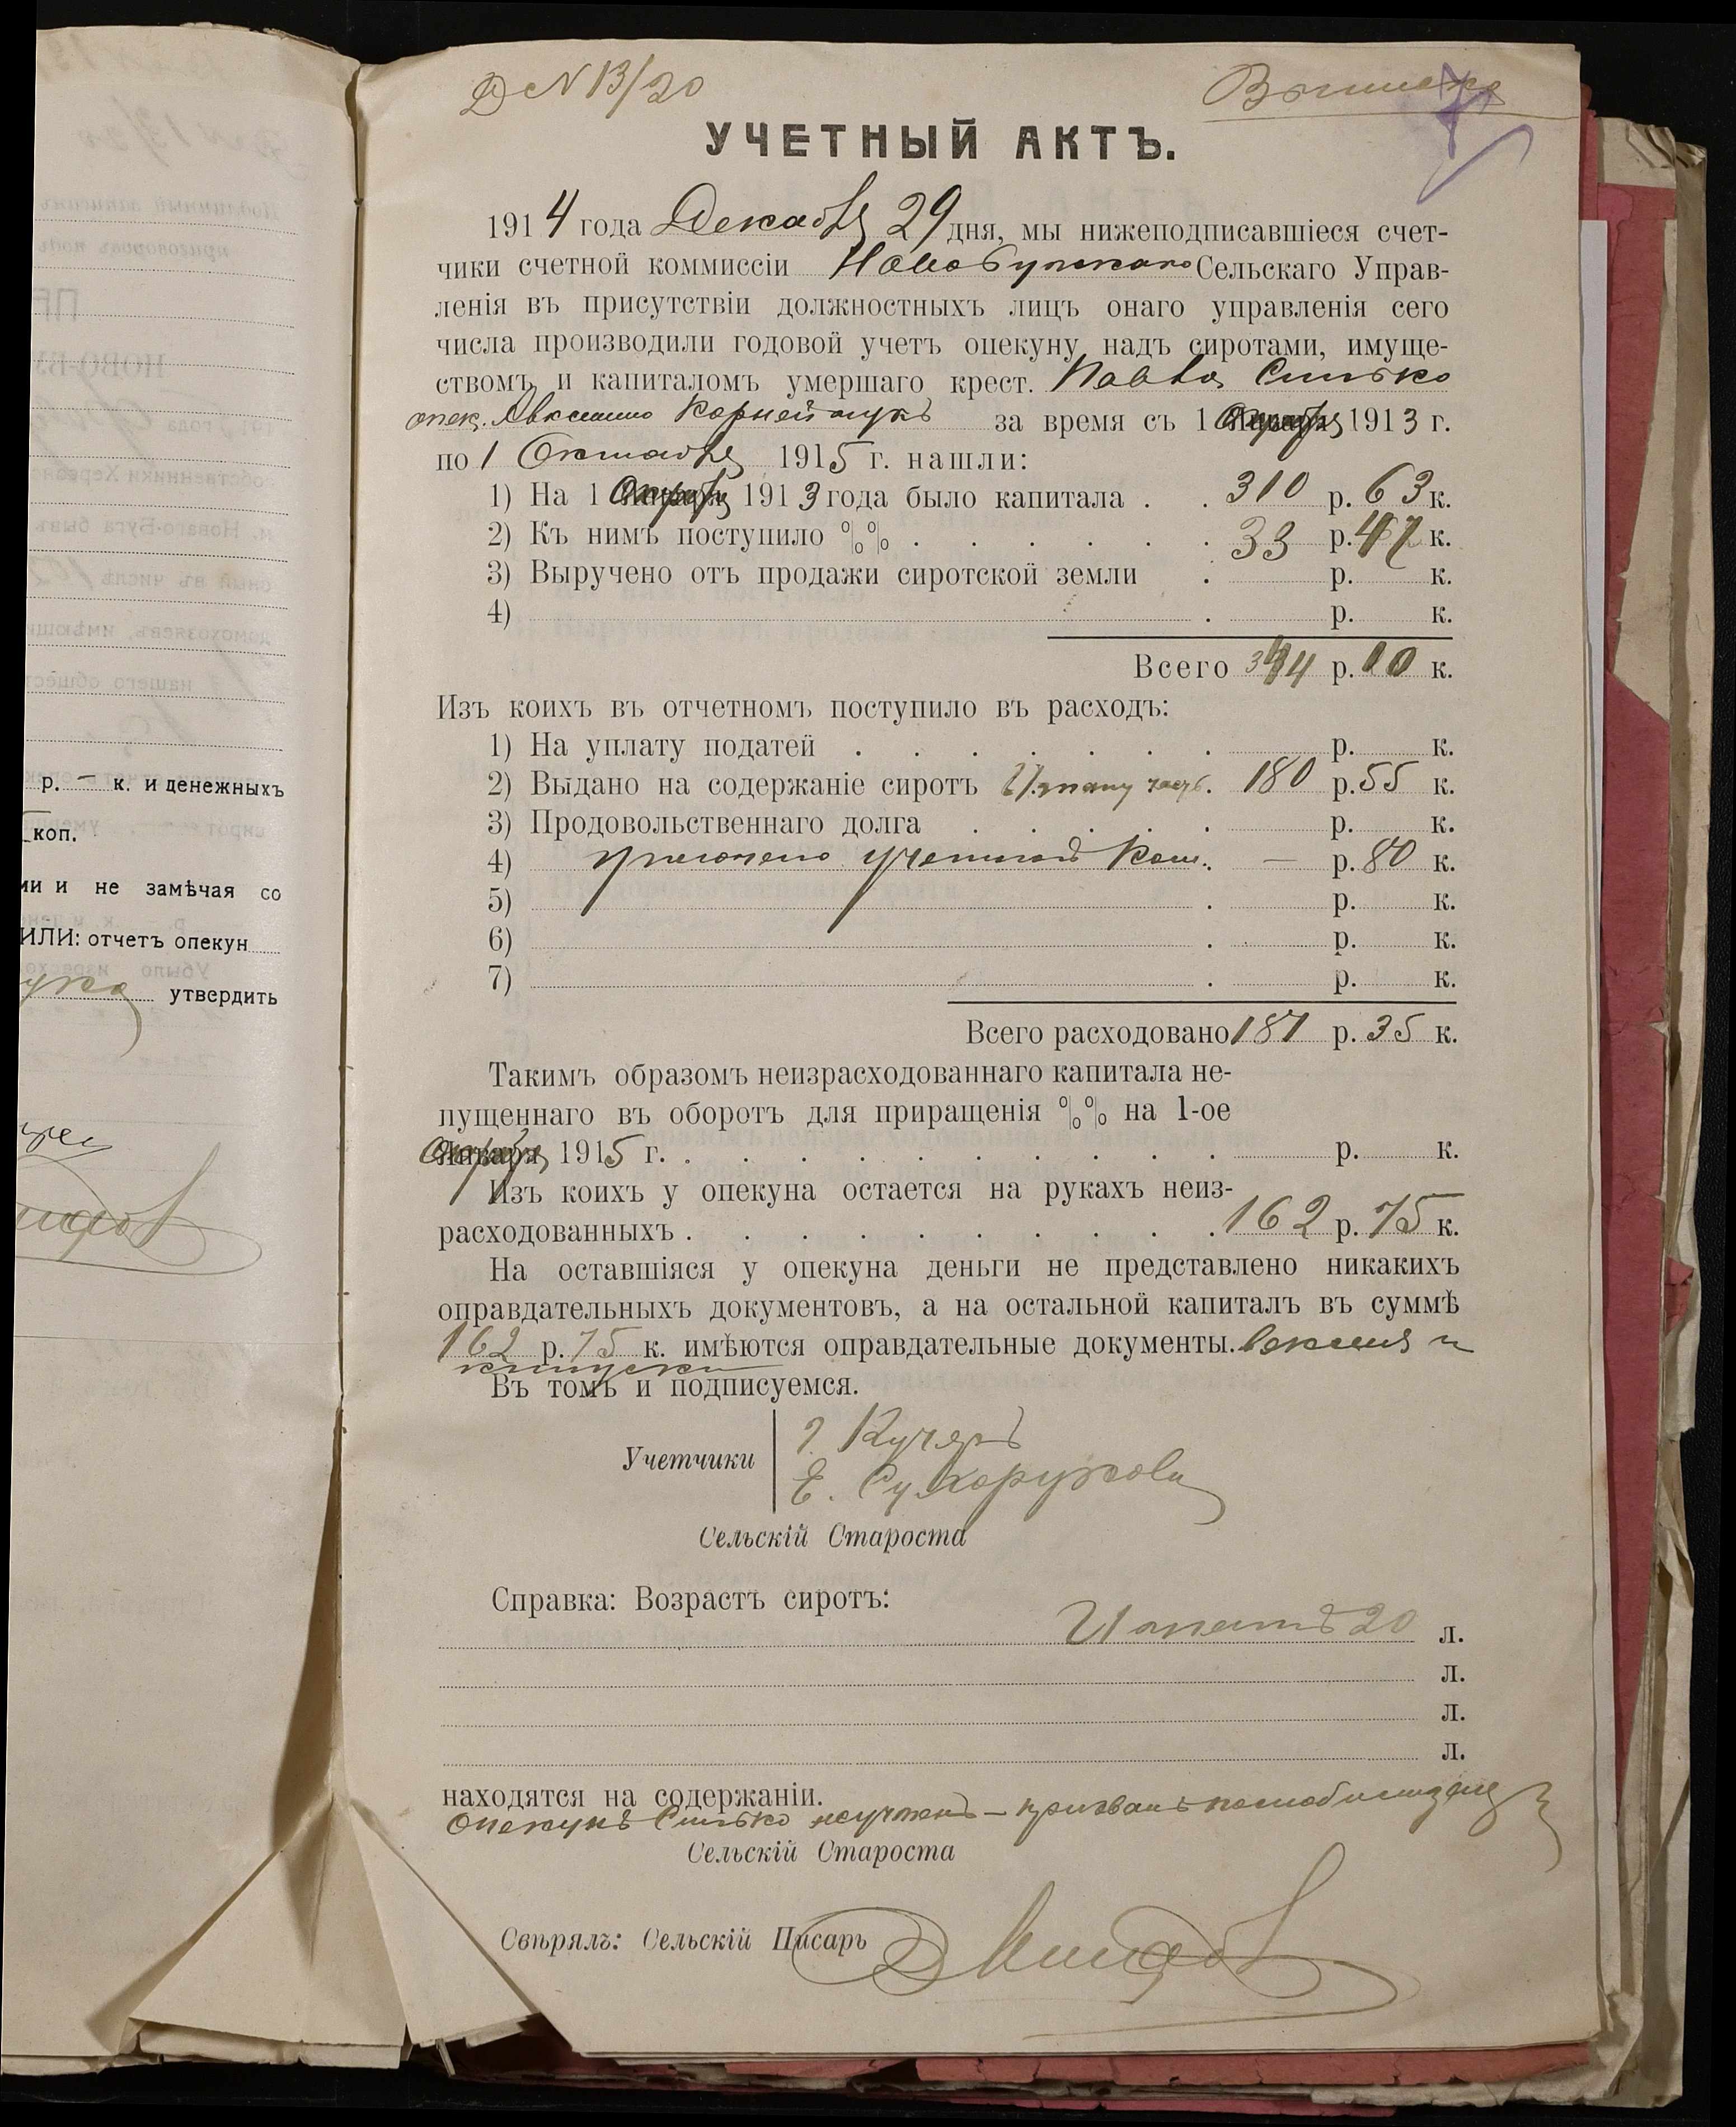 р. — к. и денежныхъ
коп.
ми и не замѣчая со
ИЛИ: отчетъ опекун
утвердить
Д N 13/20
УЧЕТНЫЙ АКТЪ.
1914 года Декабря 29 дня, мы нижеподписавшіеся счет-
чики счетной коммиссіи Новобугскаго Сельскаго Управ-
ленія въ присутствіи должностныхъ лицъ онаго управленія сего
числа производили годовой учетъ опекуну надъ сиротами, имуще-
ствомъ и капиталомъ умершаго крест. Павла Синько
опек. Корнейчукъ за время съ 1 Октября 1913 г.
по 1 Октября 1915 г. нашли:
1) На 1 Октября 1913 года было капитала . . 310 р. 63 к.
2) Къ нимъ поступило %% . . . . . . 33 р. 47 к.
3) Выручено отъ продажи сиротской земли . р. к.
4) . р. к.
Всего 344 р. 10 к.
Изъ коихъ въ отчетномъ поступило въ расходъ:
1) На уплату податей . . . . . . . р. к.
2) Выдано на содержаніе сиротъ Ипату . 180 р. 55 к.
3) Продовольственнаго долга . . . . . р. к.
4) учетной Ком. . — р. 80 к.
5) . р. к.
6) . р. к.
7) . р. к.
Всего расходовано 181 р. 35 к.
Такимъ образомъ неизрасходованнаго капитала не-
пущеннаго въ оборотъ для приращенія %% на 1-ое
Октября 1915 г. . . . . . . . . . . р. к.
Изъ коихъ у опекуна остается на рукахъ неиз-
расходованныхъ . . . . . . . . . . 162 р. 75 к.
На оставшіяся у опекуна деньги не представлено никакихъ
оправдательныхъ документовъ, а на остальной капиталъ въ суммѣ
162 р. 75 к. имѣются оправдательные документы. векселя и
Въ томъ и подписуемся.
Учетчики
Кучеръ
Е. Сухорукова
Сельскій Староста
Справка: Возрастъ сиротъ:
Ипатъ 20 л.
л.
л.
л.
находятся на содержаніи.
Опекунъ Синько неучтенъ — призванъ
Сельскій Староста
Свѣрялъ: Сельскій Писарь